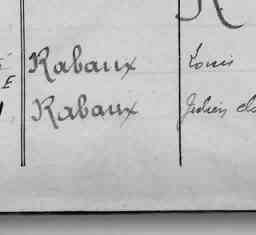 R
Rabaux Louis
E
Rabaux Julien